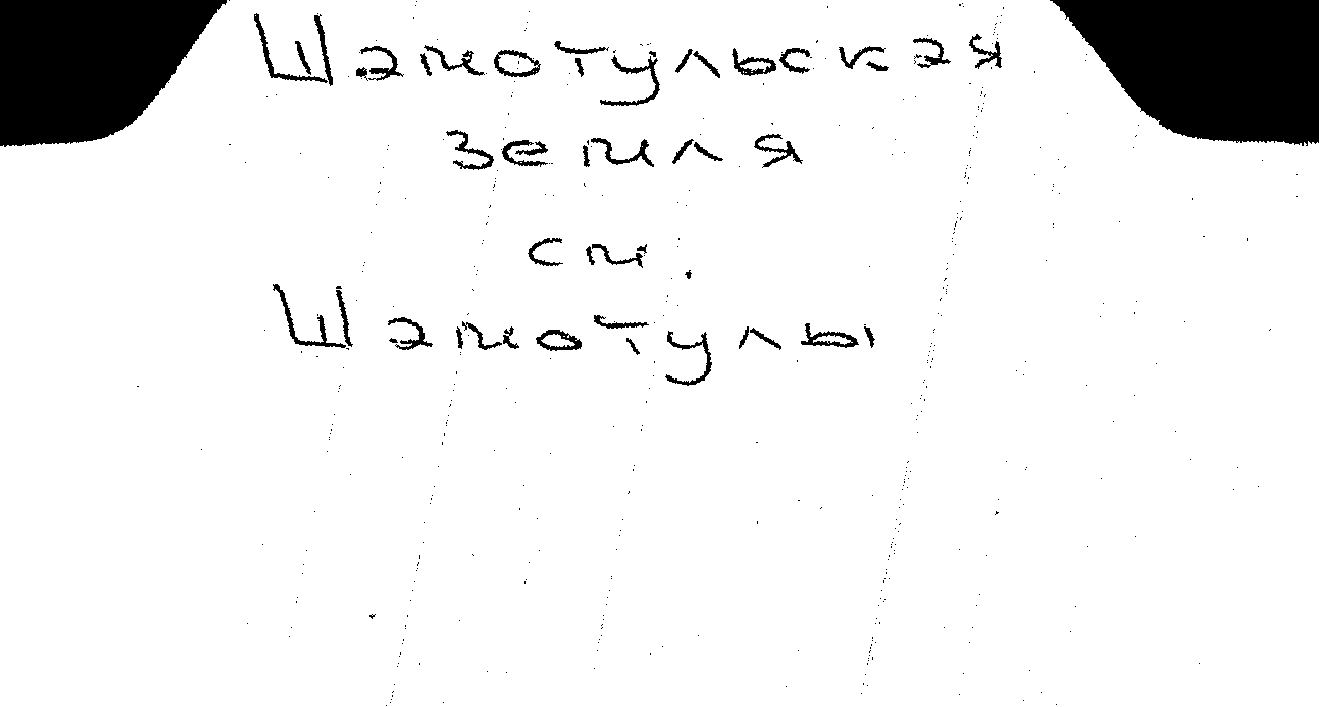 Шамотульская
земля
см.
Шамотулы